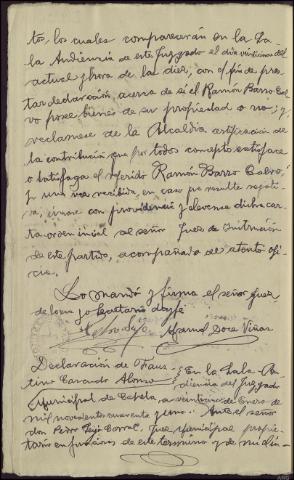 tos, los cuales comparecerán en la Sa-
la Audiencia de este Juzgado el día veintiuno del
actual y hora de las diez, con el fin de pres-
tar declaración, acerca de si el Ramón Barro Cal-
vo posee bienes de su propiedad o no; y,
reclamese de la Alcaldia certificación de
la contribución que por todos concepto satisface
o satisfaga el referido Ramón Barro Calvo,
y una vez recibida, en caso que resulte negati-
va, unase con providencia y devuelvase dicha car-
ta orden inicial al señor Juez de Instrucción
de este partido, acompañado de atento ofi-
cio.
Lo mandó y firma el señor Juez
de que yo Secretario doy fé
Manuel Dose Viñas
Declaración de Faus-
tino Alonso
En la Sala-Au-
diencia del Juzgado
Municipal de Capela, a veintiuno de Enero de
mil novecientos cuarenta y uno. Ante el señor
don Pedro Feijó Corral, Juez Municipal propie-
tario en funciones de este termino y de mi